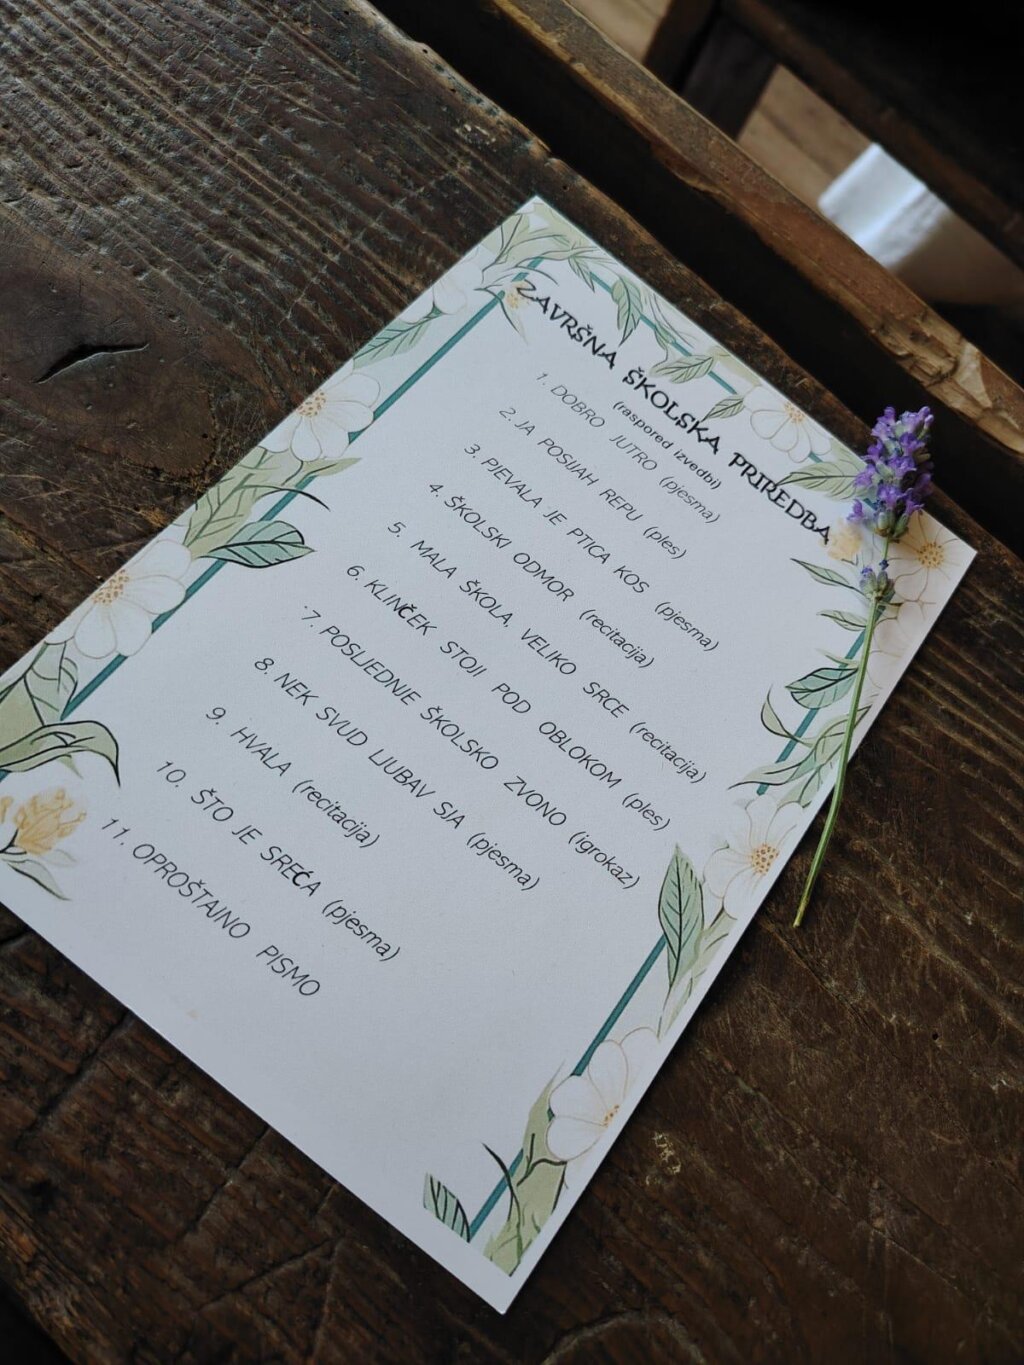 ZAVRŠNA ŠKOLSKA PRIREDBA
(raspored izvedbi)
1. DOBRO JUTRO (pjesma)
2. JA POSIJAH REPU (ples)
3. PJEVALA JE PTICA KOS (pjesma)
4. ŠKOLSKI ODMOR (recitacija)
5. MALA ŠKOLA, VELIKO SRCE (recitacija)
6. KLINČEK STOJI POD OBLOKOM (ples)
7. POSLJEDNJE ŠKOLSKO ZVONO (igrokaz)
8. NEK SVUD LJUBAV SJA (pjesma)
9. HVALA (recitacija)
10. ŠTO JE SREĆA (pjesma)
11. OPROŠTAJNO PISMO